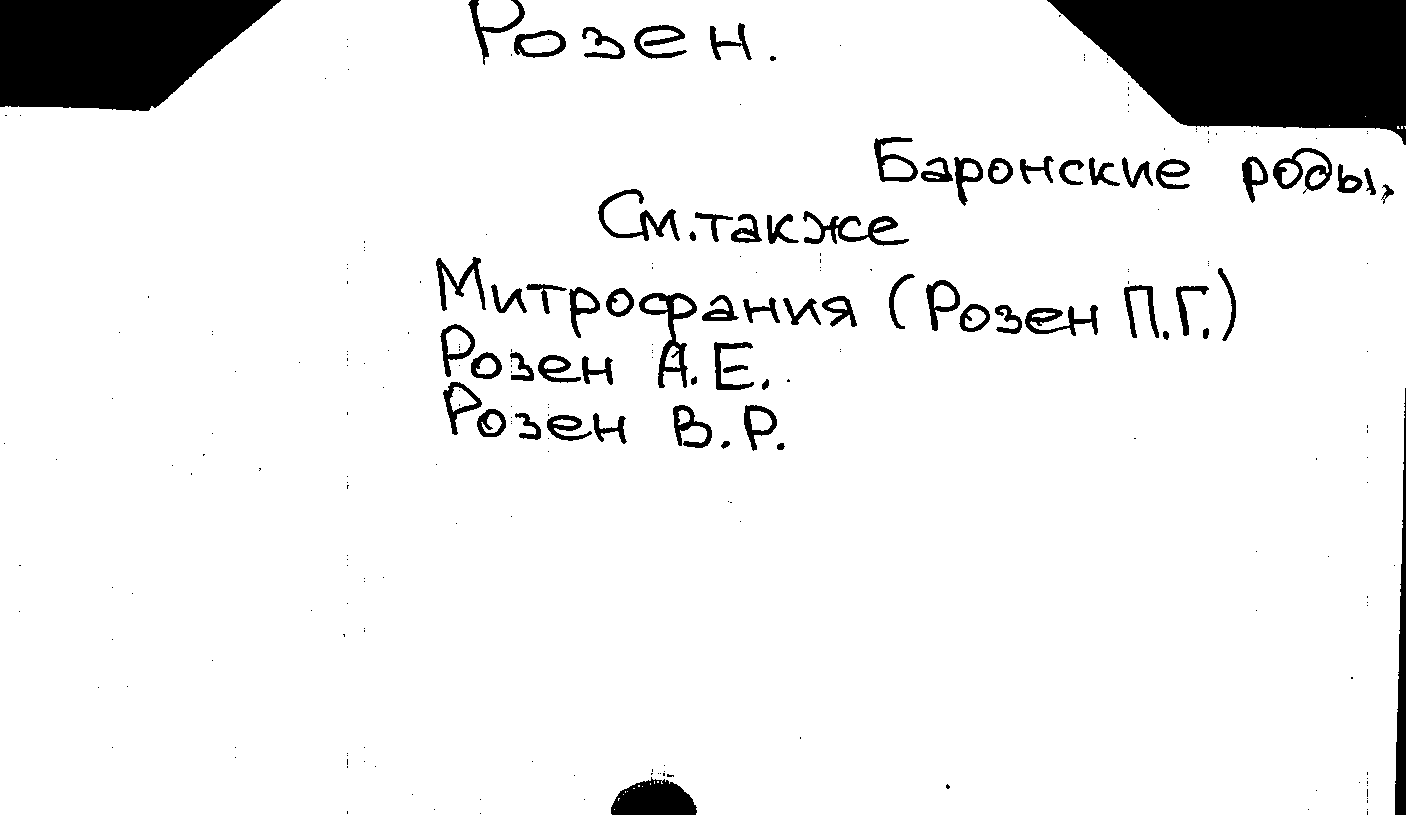 Розен.
Баронские роды,
См. также
Митрофания (Розен П.Г.)
Розен А.Е.
Розен В.Р.